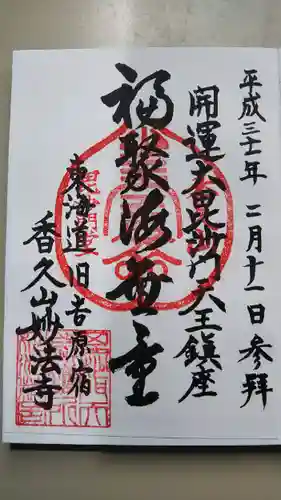 平成三十一年 二月十一日 参拜
開運大毘沙門天王鎮座
福聚海無量
東海道旧吉原宿
香久山妙法寺